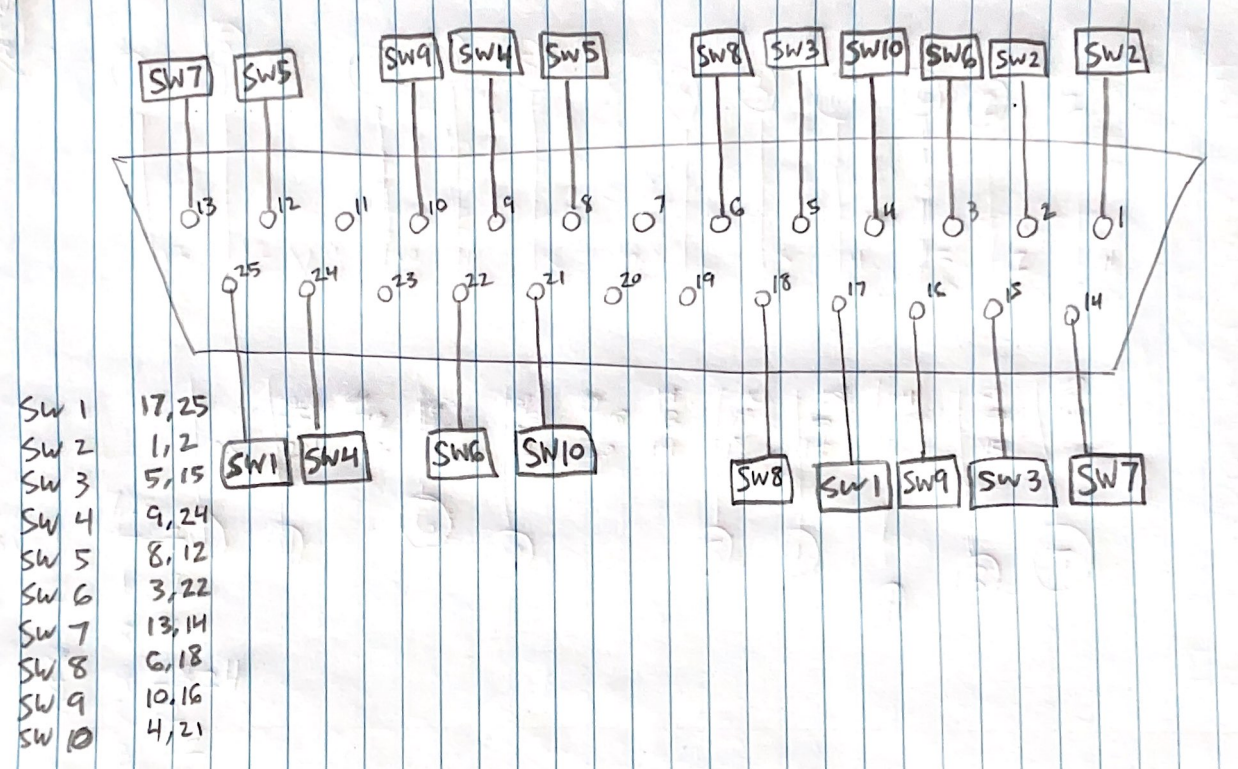 SW7 SW5 SW9 SW4 SW5 SW8 SW3 SW10 SW6 SW2 SW2
13 12 11 10 9 8 7 6 5 4 3 2 1
25 24 23 22 21 20 19 18 17 16 15 14
SW1 SW4 SW6 SW10 SW8 SW1 SW9 SW3 SW7
SW 1 17,25
SW 2 1,2
SW 3 5,15
SW 4 9,24
SW 5 8,12
SW 6 3,22
SW 7 13,14
SW 8 6,18
SW 9 10,16
SW 10 4,21